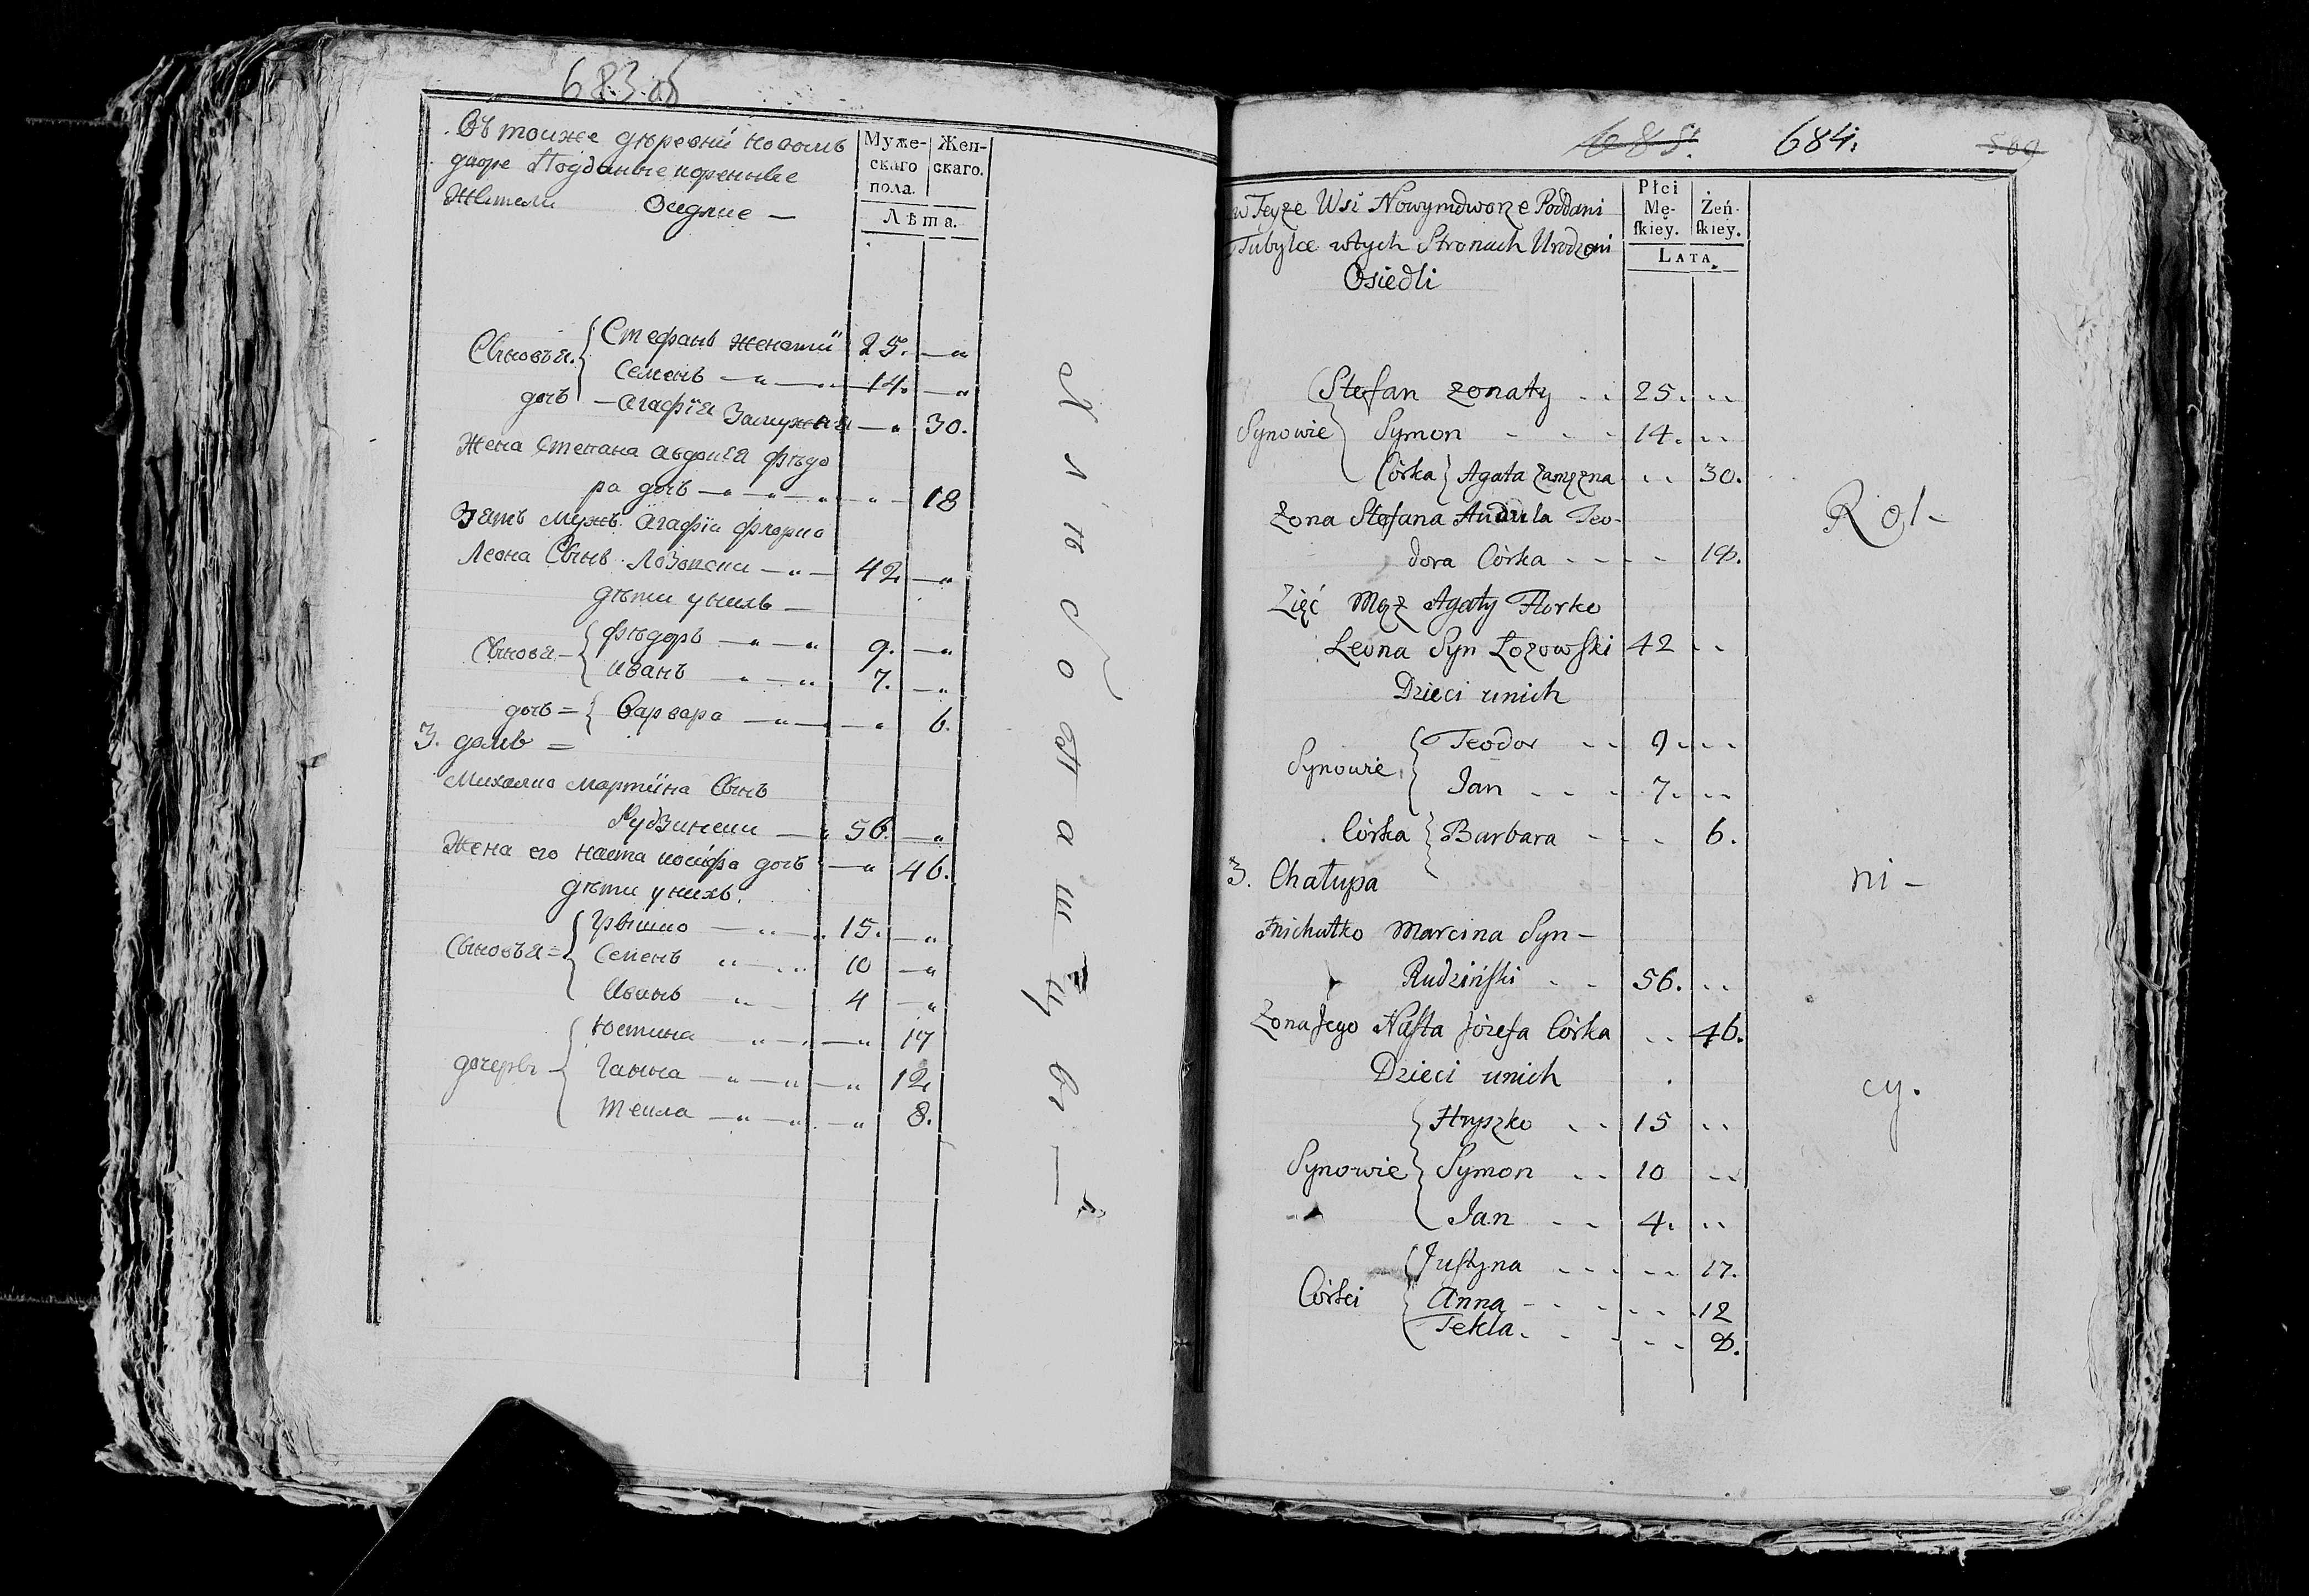 683 об
Въ тоиже дѣревни Новомъ
дворе Подданые коренные
Жители Оседлые —
Муже-
скаго
пола.
Жен-
скаго.
Лѣта.
Стефанъ женатй 25. — „
Сыновъя. Семенъ — „ — „ 14. — „
дочъ — Агафїя Замужняя — „ 30.
Жена Степана Авдоия Фѣдо
ра дочь — „ — „ — „ — 18
Зять мужъ Агафїи Флорко
Леона Сынъ Лозовски — „ — 42 — „
дѣти у нихъ —
Сыновя — Фѣдоръ — „ — „ 9. — „
Иванъ — „ — „ 7. — „
дочь = Варвара — „ — „ 6.
3. домъ =
Михалко Мартина Сынъ
Рудзински — „ 56. — „
Жена его Наста Иосифа дочь — „ 46.
дѣти у нихъ.
Грышко — „ — „ 15. — „
Сыновъя = Семенъ „ — „ 10 — „
Иванъ — „ — 4 — „
Юстина — „ — „ 17
дочеры — Ганна — „ — „ — „ 12.
Текла — „ — „ — „ 8.
684.
w Teyże Wsi Nowymdworze Poddani
Tubylce w tych Stronach Urodzeni
Osiedli
Płci
Mę-
ſkiey.
Żeń-
ſkiey.
LATA.
Stefan żonaty - - 25. - -
Synowie Symon - - - 14. - -
Córka Agata zamężna - - 30.
Żona Stefana Teo-
dora Córka - - - - 18.
Zięć Mąż Agaty Florko
Leona Syn Łozowſki 42 - -
Dzieci u nich
Teodor - - 9. - -
Synowie Jan - - - 7. - -
Córka Barbara - - - 6.
3. Chałupa
Michałko Marcina Syn —
Rudzińſki - - 56. - -
Żona Jego Naſta Józefa Córka - - 46.
Dzieci u nich
Hryszko - - 15 - -
Synowie Symon - - 10 - -
Jan - - 4. - -
Juſtyna - - - - - 17.
Córki Anna - - - - - 12
Tekla - - - - - 8.
Rol-
ni-
cy.